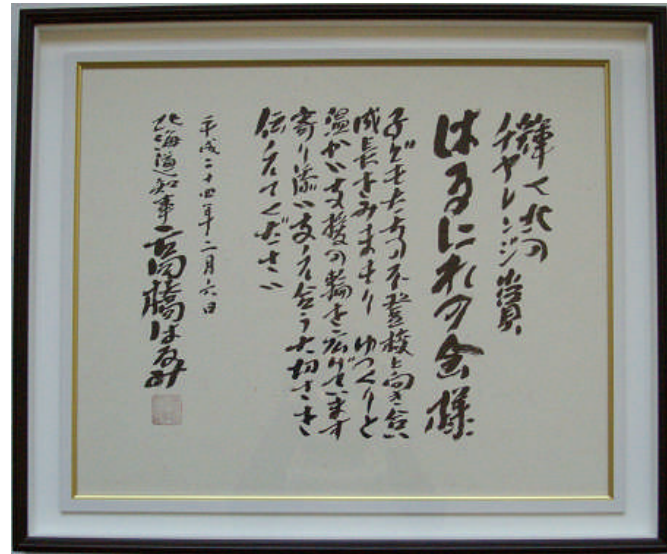 輝く北のチャレンジ賞
はるにれの会様
子どもたちの不登校と向き合い
成長をみまもり ゆっくりと
温かい支援の輪を広げています
寄り添い支え合う大切さを
伝えてください
平成二十四年二月六日
北海道知事 高橋はるみ